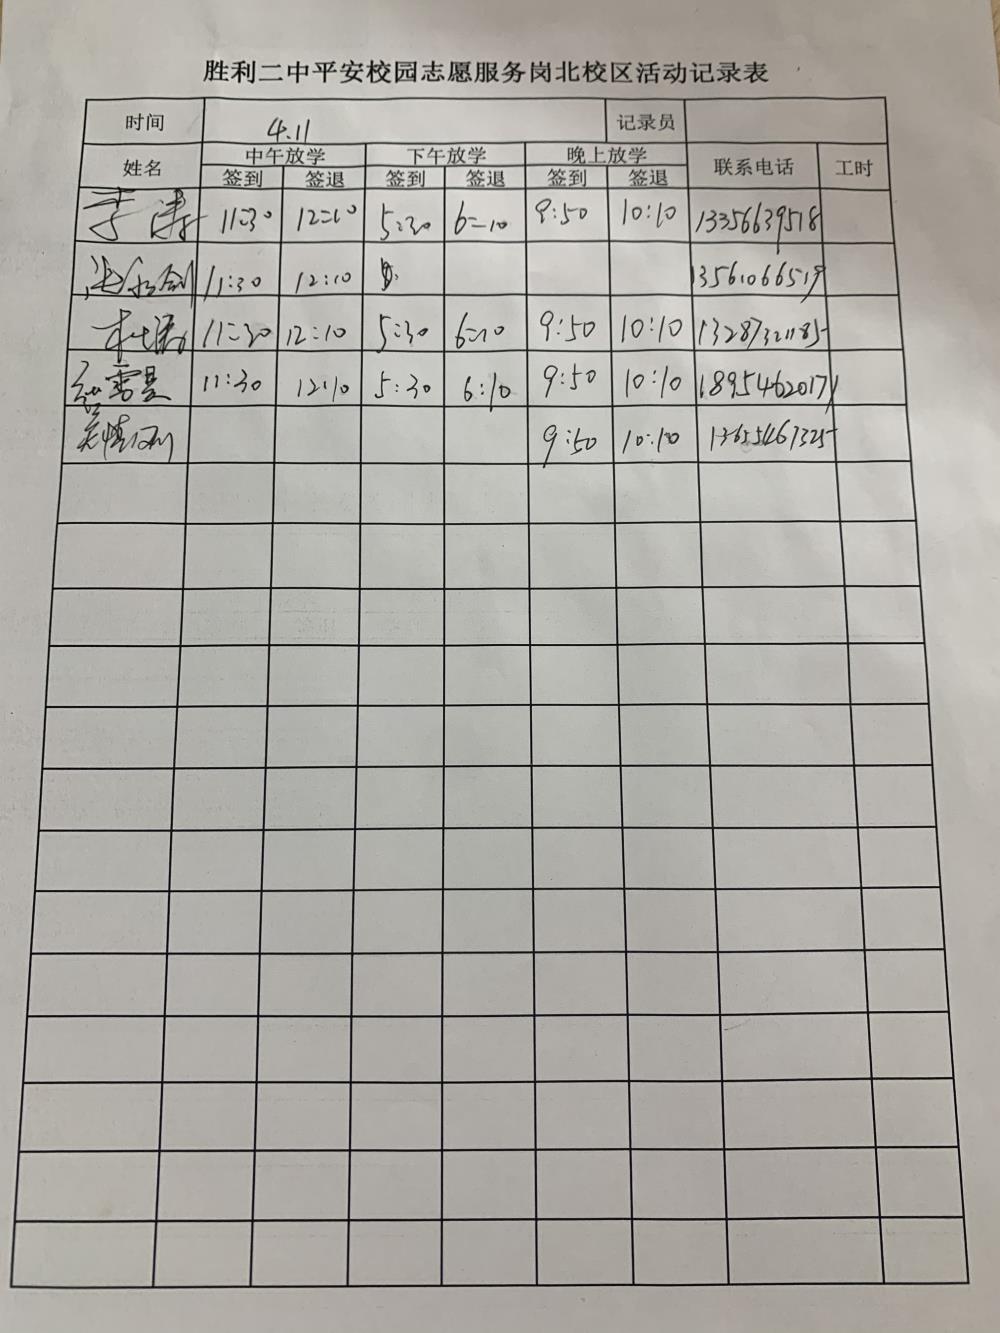 胜利二中平安校园志愿服务岗北校区活动记录表
时间 4.11 记录员
姓名 中午放学 下午放学 晚上放学 联系电话 工时
签到 签退 签到 签退 签到 签退
李涛 11:30 12:10 5:30 6:10 9:50 10:10 13356639518
11:30 12:10 13561066519
杜 11:30 12:10 5:30 6:10 9:50 10:10 13287321185
11:30 12:10 5:30 6:10 9:50 10:10 18954620171
9:50 10:10 13655461325